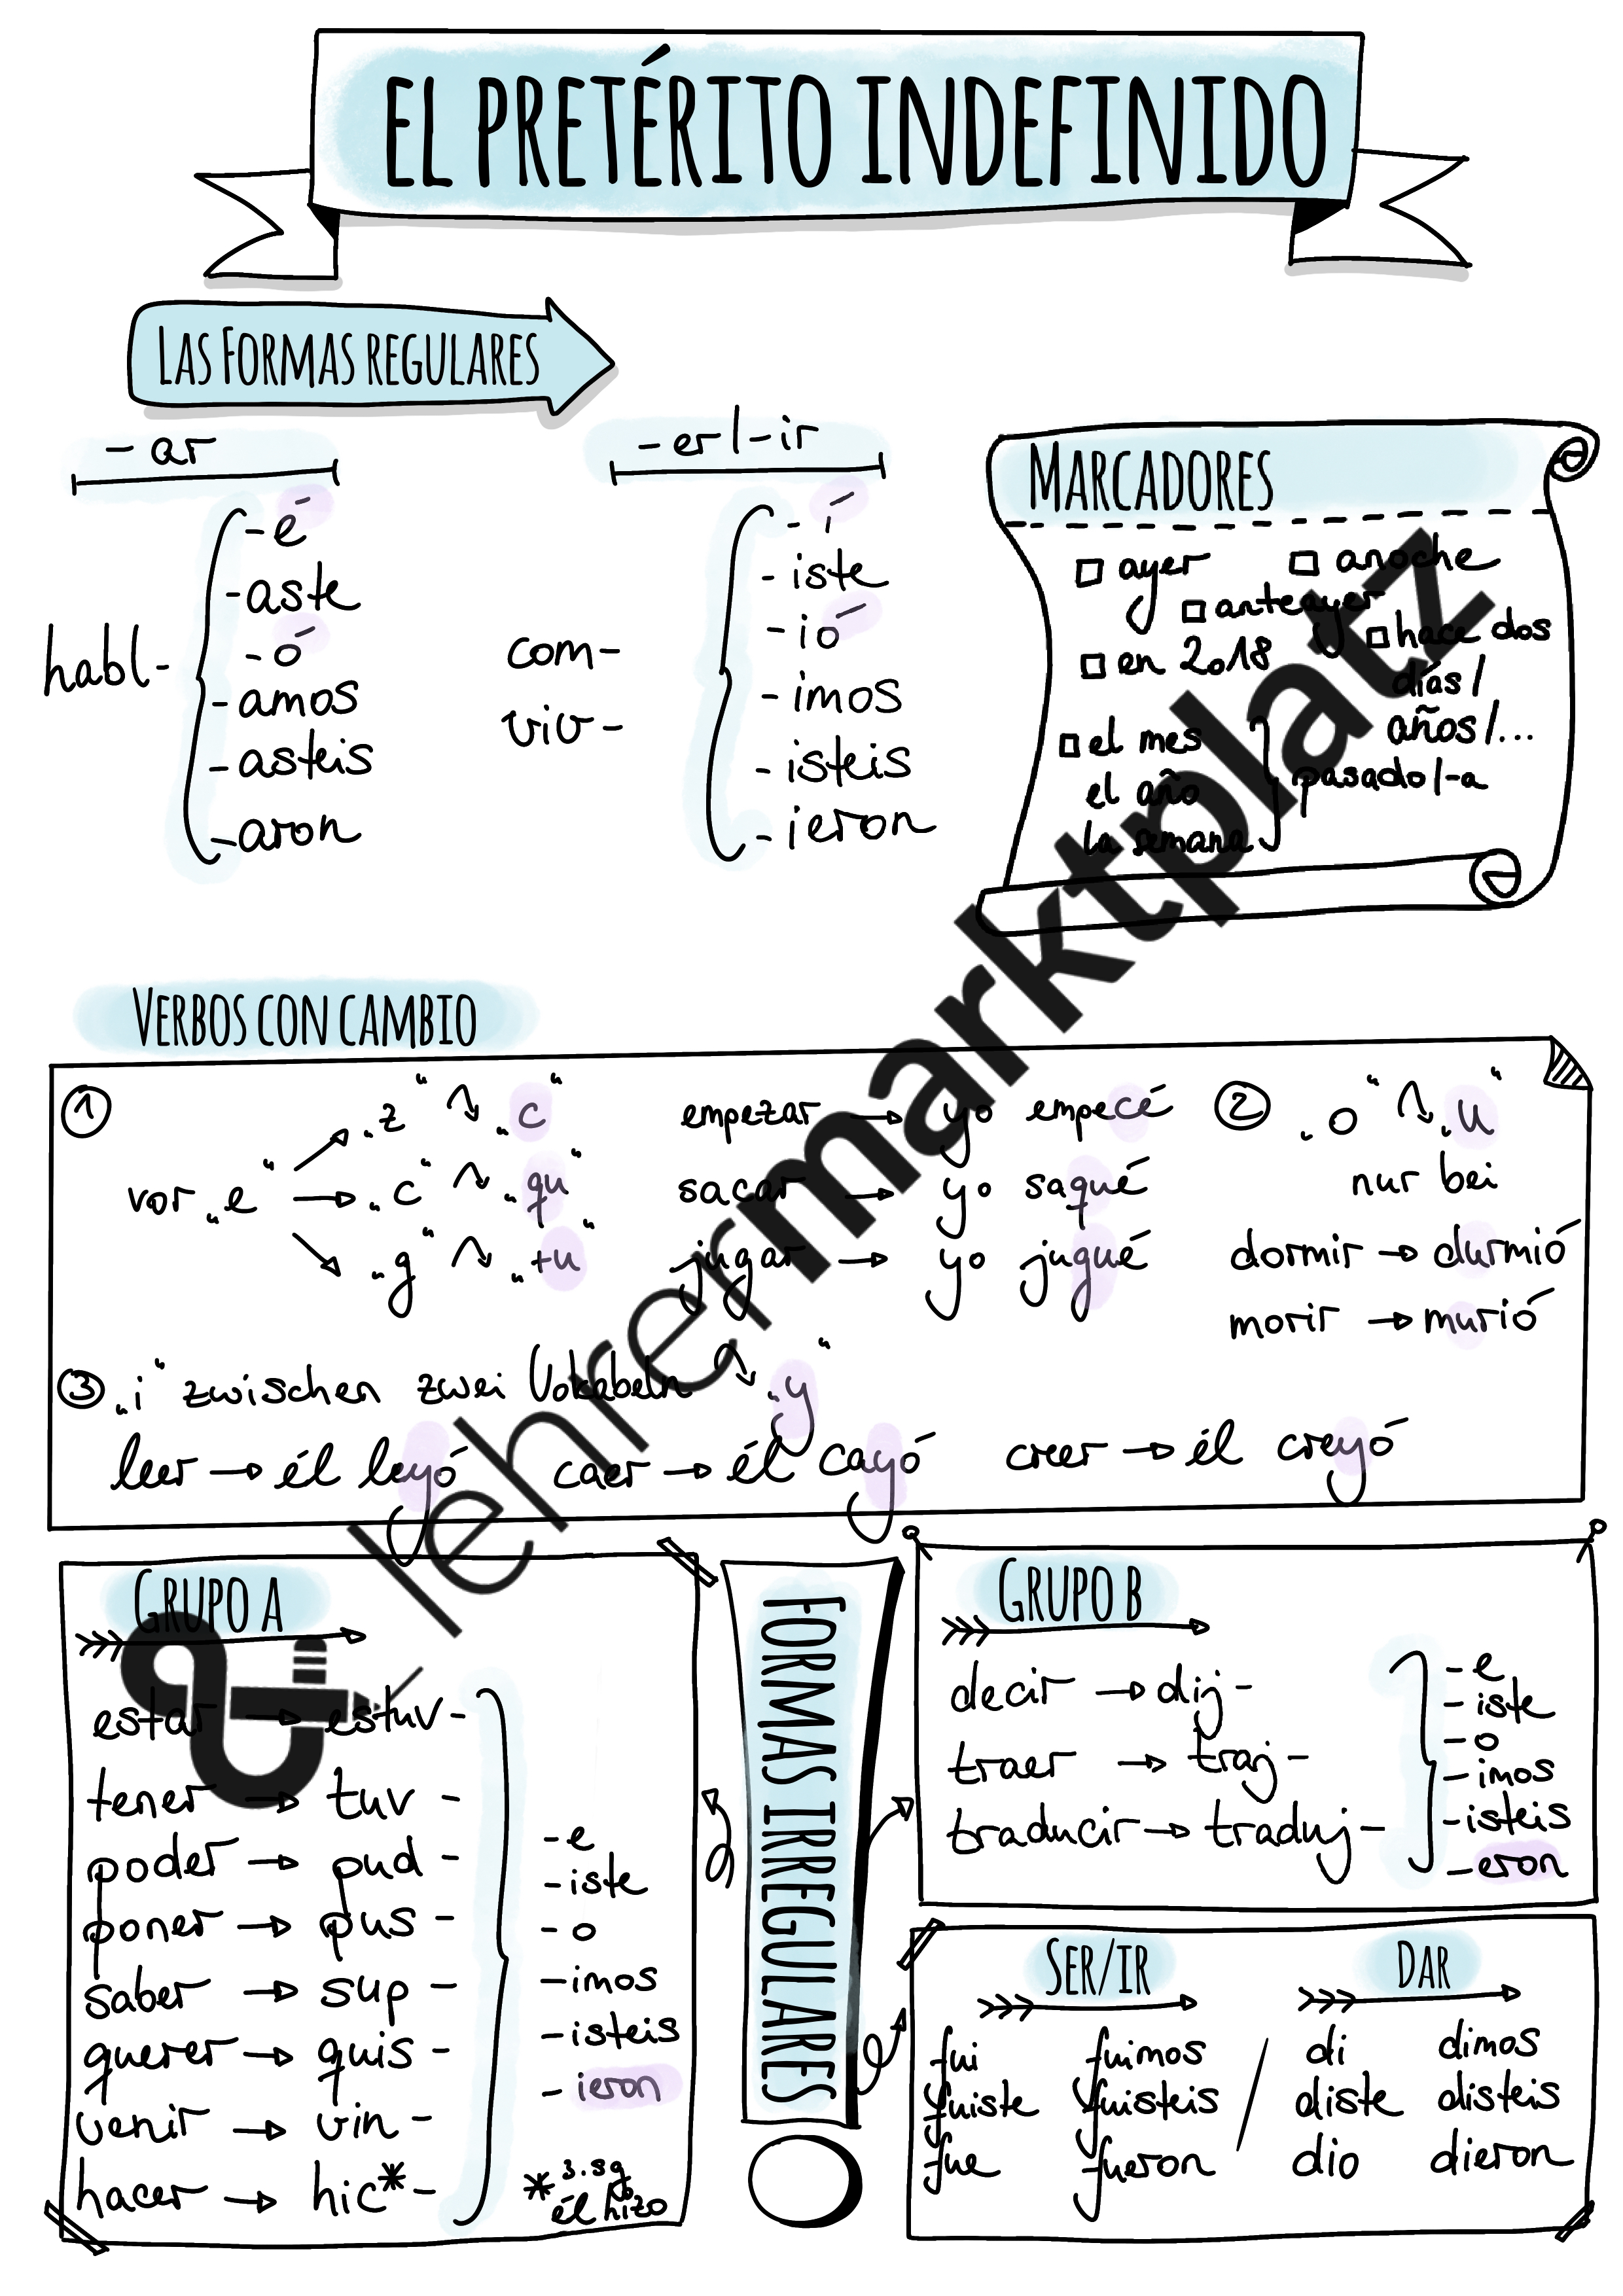 EL PRETÉRITO INDEFINIDO
LAS FORMAS REGULARES
-ar
habl-
-é
-aste
-ó
-amos
-asteis
-aron
-er/-ir
com-
viv-
-í
-iste
-ió
-imos
-isteis
-ieron
MARCADORES
ayer
anoche
anteayer
en 2018
hace dos
días/
años/...
el mes
el año
la semana
pasado/-a
VERBOS CON CAMBIO
1
vor „e“
„z“ „c“
„c“ „qu“
„g“ „+u“
empezar → yo empecé
sacar → yo saqué
jugar → yo jugué
2 „o“ „u“
nur bei
dormir → durmió
morir → murió
3 „i“ zwischen zwei Vokabeln „y“
leer → él leyó caer → él cayó creer → él creyó
GRUPO A
estar → estuv-
tener → tuv-
poder → pud-
poner → pus-
saber → sup-
querer → quis-
venir → vin-
hacer → hic*-
-e
-iste
-o
-imos
-isteis
-ieron
*3.sg
él hizo
FORMAS IRREGULARES
GRUPO B
decir → dij-
traer → traj-
traducir → traduj-
-e
-iste
-o
-imos
-isteis
-eron
SER/IR
fui fuimos
fuiste fuisteis
fue fueron
/
DAR
di dimos
diste disteis
dio dieron
lehrermarktplatz